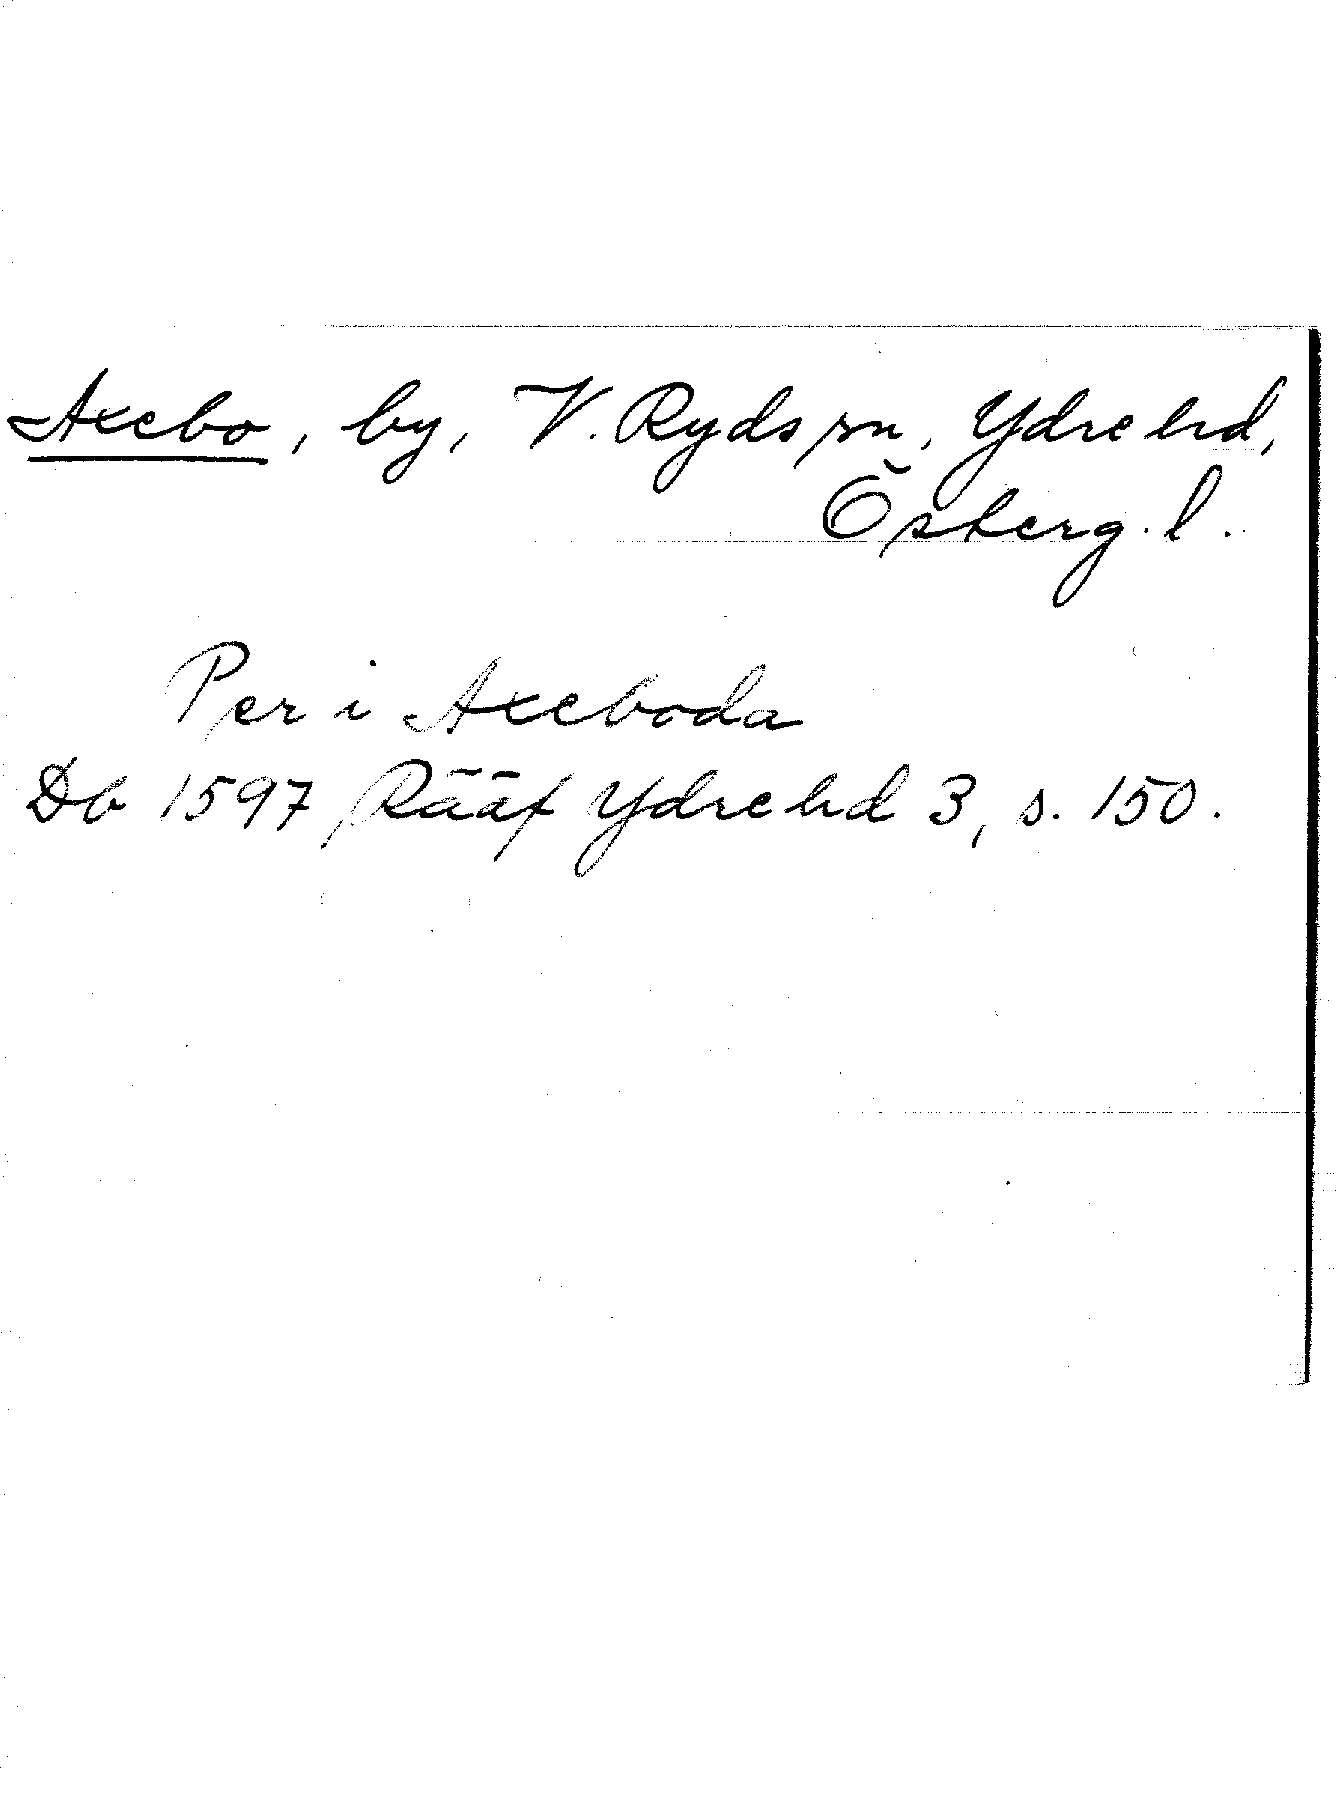 Axebo, by, V. Ryds sn, Ydre hd,
Österg. l.
Per i Axeboda
Db 1597 Rääf Ydre hd 3, s. 150.